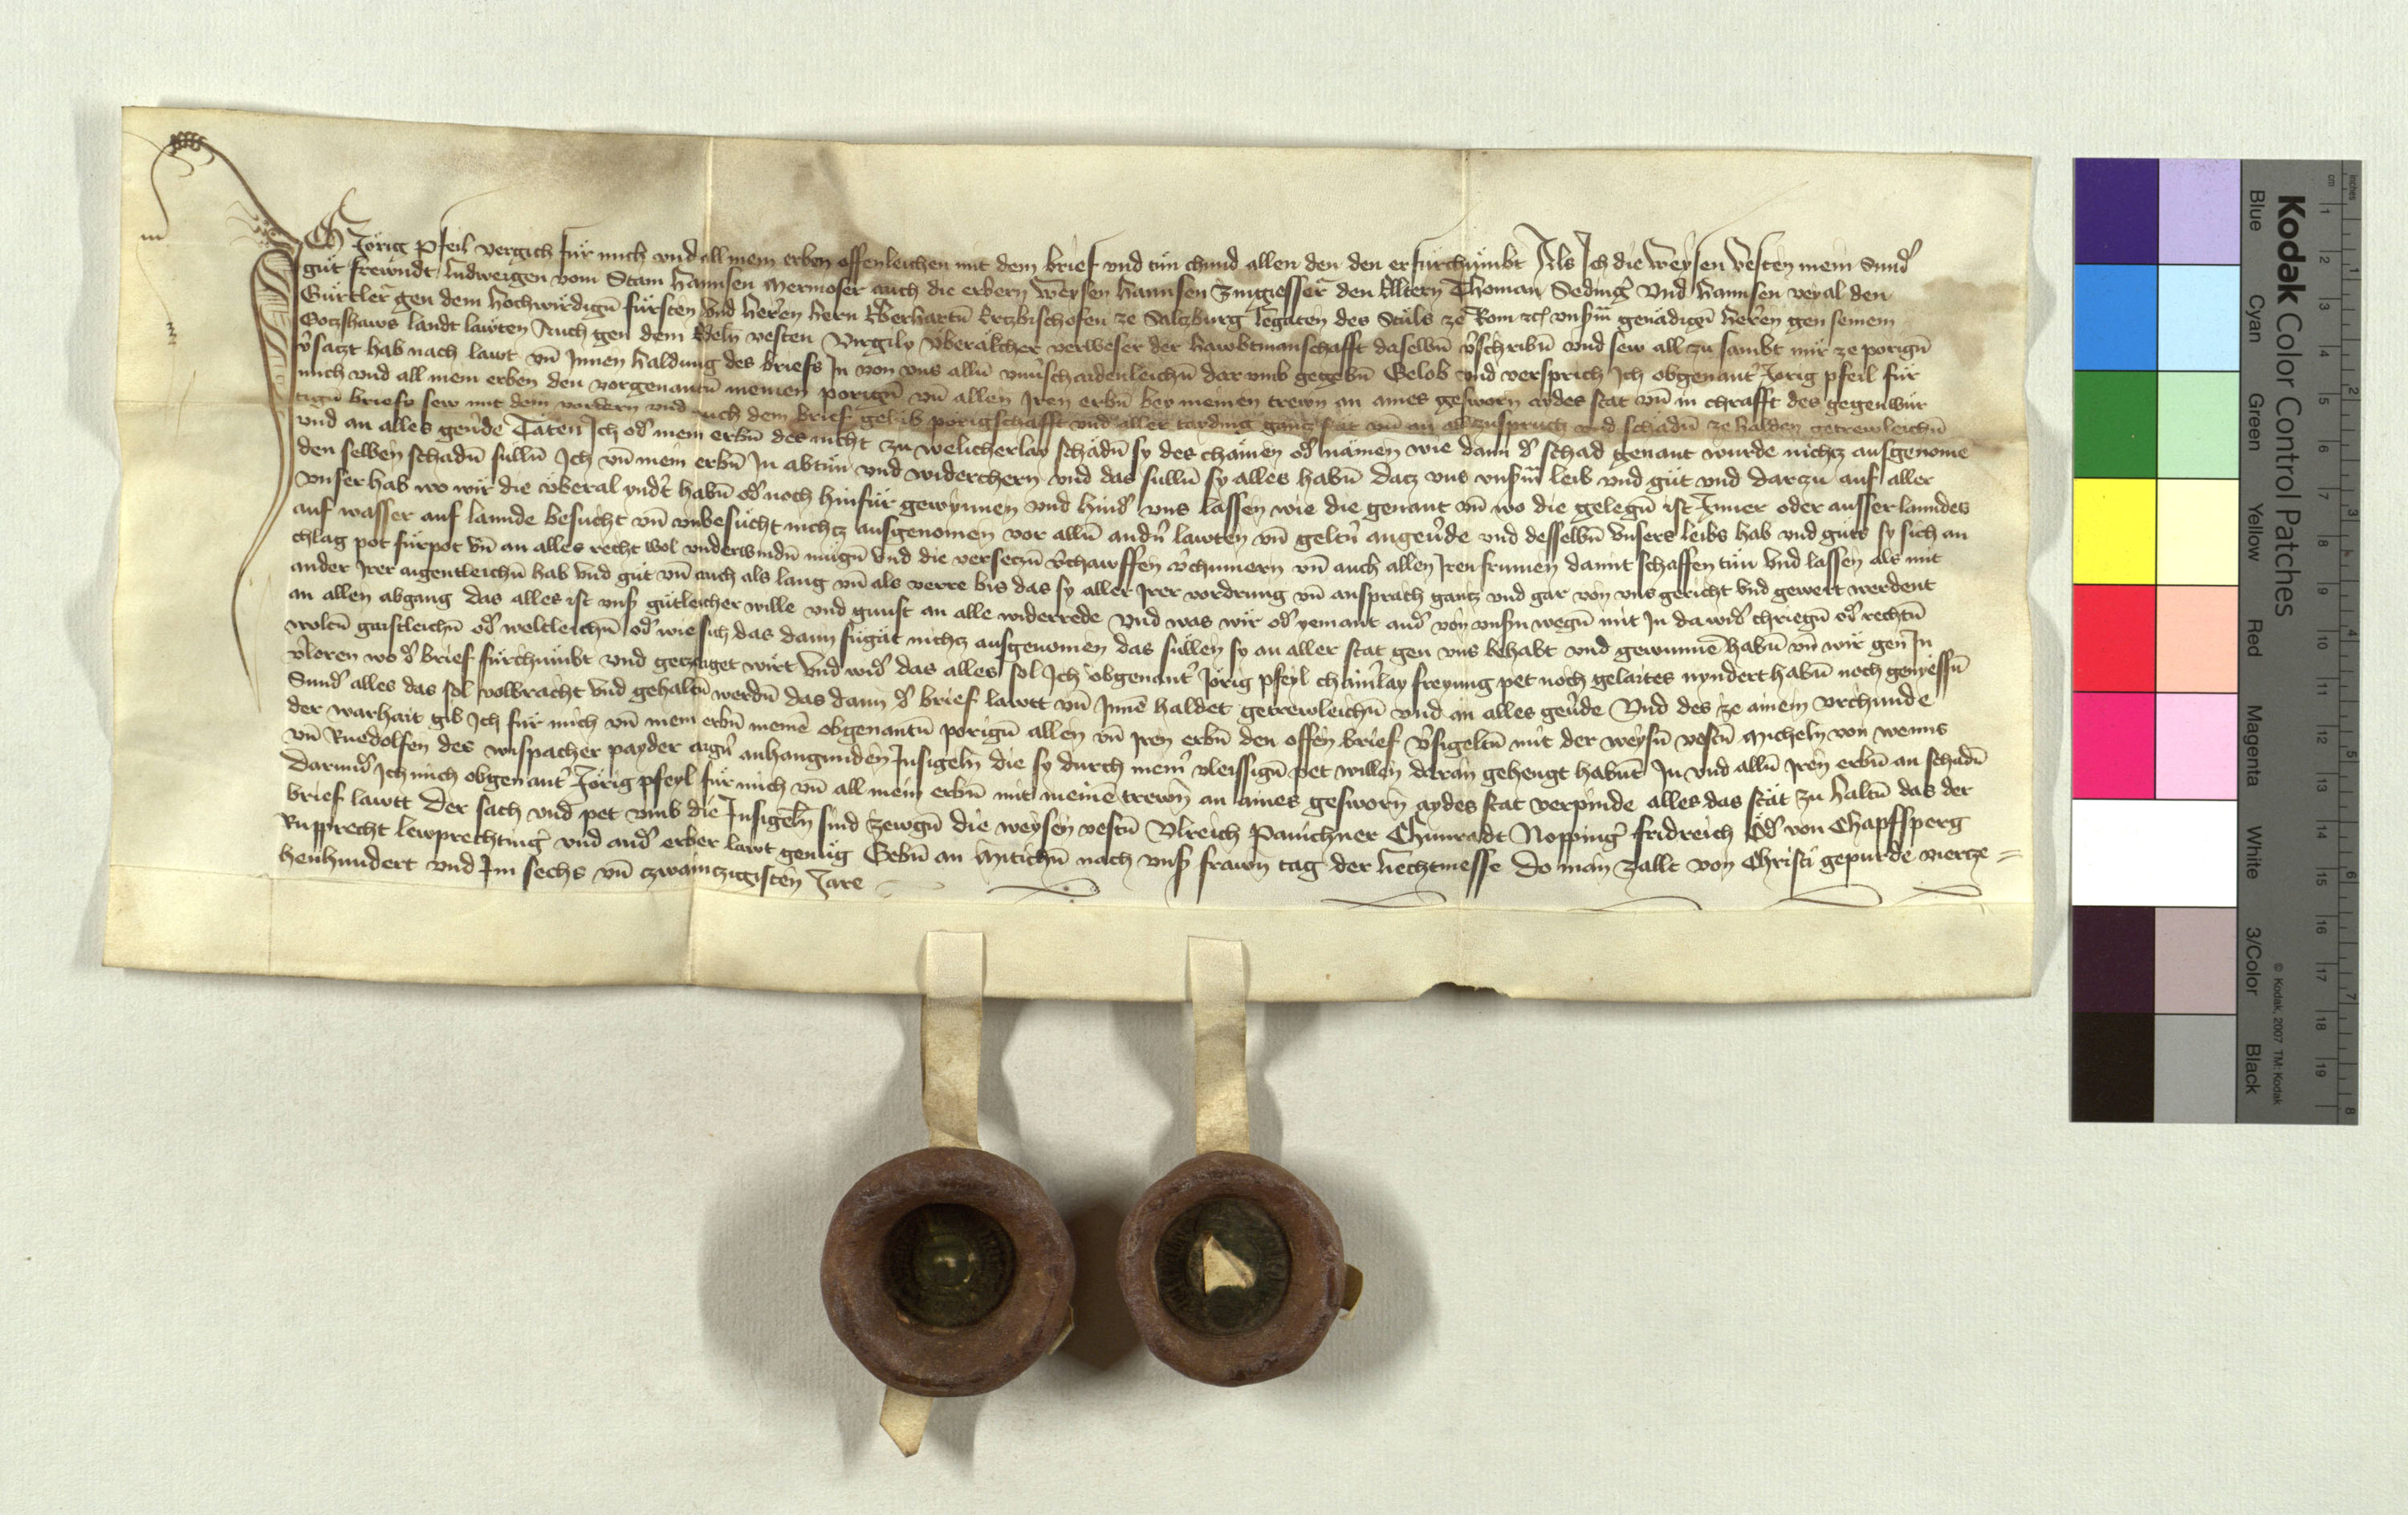 Ich Jörig Pfeil vergich für mich vnd all mein erben offenleichen mit dem brief vnd tün chund allen den den er fürchümbt Als Ich die weysen vesten mein Sund̉
güt frewndt Ludweigen vom Stain Hannsen Mermoser auch die erbern weysen Hannsen Zingiesser den Elltern Thoman Seding̉ Vnd Hannsen veyal den
Gürtler gen dem hochwirdigñ fürsten vnd herr̉en hern Eberhartñ Ertzbischofen ze Saltzburg Legaten des Stüls ze Rom ꝛc vnſm̃ genädigñ herr̉en gen seinem
Gotzhaws landt lawten Auch gen dem Edelñ vesten Virgily Vberäkcher verweser der hawbtmanschafft daselbñ v̉schribñ vnd sew all zu sambt mir ze porigñ
v̉satzt hab nach lawt vñ Innen haldung des briefs In von vns allñ vnu̓schaidenleichñ dar vmb gegebñ Gelob vnd versprich Ich obgenant̉ Jörig pfeil für
mich vnd all mein erben den vorgenantñ meinen porigñ vñ allen Iren erbñ bey meinen trewn an aines geſworn aydes stat vñ in chrafft des gegenwür
tigñ briefs sew mit dem vordern vnd auch dem brief gelüb porigschafft vnd aller tayding gantz stät vñ an all zuspruch vnd schädñ ze halden getrewleichñ
vnd an alles geu̓de Täten Ich od̉ mein erbñ des nicht zu welicherlay schädñ sy des chämen od̉ nämen wie dann d̉ schad genant wurde nichtz ausgenome
den selben schadñ süllñ Ich vñ mein erbñ In abtün vnd widerchern vnd das sullñ sy alles habñ datz vns vnſm̃ leib vnd güt vnd dartzu auf aller
vnser hab wo wir die vberal yndt̉ habñ od̉ noch hinfür gewynnen vnd hind̉ vns lassen wie die genant vñ wo die gelegñ ist Inner oder ausser lanndes
auf wasser auf lannde besücht vñ vnbesücht nichtz ausgenomen vor allñ and̉ñ lawten vñ gelt̉n angeu̓de vnd desselbñ vnsers leibs hab vnd güts sy sich an
chlag pot fürpot vñ an alles recht wol vnderwindñ mügñ vnd die versetzñ v̉chauffen v̉chumern vñ auch allen Iren frumen damit schaffen tün vnd lassen als mit
ander Irer aigentleichñ hab vnd güt vñ auch als lang vñ als verre bis das sy aller Irer vordrung vñ ansprach gantz vnd gar von vns gericht vnd gewert werdent
an allen abgang das alles ist vnſ̉ gütleicher wille vnd gunst an alle widerrede Vnd was wir od̉ yemant and̉ von vnſn̉ wegñ mit In da wid̉ chriegñ od̉ rechtñ
woltñ gaistleichñ od̉ weltleichñ od̉ wie sich das dann fügät nichtz ausgenomen das süllen sy an aller stat gen vns behabt vnd gewunnẽ habñ vñ wir gen In
v̉loren wo d̉ brief fürchümbt vnd getzaiget wirt Vnd wid̉ das alles sol Ich obgenant̉ Jörig pfeyl chainr̉lay freyung pet noch gelaites nyndert habñ noch genyessñ
Sund̉ alles das sol volbracht vnd gehaltñ werdñ das dann d̉ brief lawtt vñ Innẽ haldet getrewleichñ vnd an alles geu̓de Vnd des ze ainem vrchunde
der warhait gib Ich für mich vñ mein erbñ meinẽ obgenantñ porigñ allen vñ Iren erbñ den offen brief v̉sigeltñ mit der weysñ vestñ Micheln von weniis
vñ Ruedolfen des wispacher payder aigñ anhangunden Insigeln die sy durch meinr̉ vleissigñ pet willen daran gehengt habñt In vnd allñ Iren erbñ an schadñ
Darund̉ Ich mich obgenant̉ Jörig pfeyl für mich vñ all mein erbñ mit meinẽ trewn an aines gesworn aydes stat verpinde alles das stät zu haltñ das der
brief lawtt Der sach vnd pet vmb die Insigeln sind zewgñ die weysen vestñ Vlreich Panichner Chunradt Nopping̉ fridreich Ӧd̉ von Chapfsperg
Rupprecht lewprechting̉ vnd and̉ erber lawt genüg Gebñ an Mitichñ nach vnſ̉ frawn tag der liechtmesse Do man zallt von Christi gepurde viertze=
henhundert vnd Im sechs vñ czwaintzigisten Jare
Kodak Color Control Patches
© Kodak, 2007 TM: Kodak
Blue Cyan Green Yellow Red Magenta White 3/Color Black
cm 1 2 3 4 5 6 7 8 9 10 11 12 13 14 15 16 17 18 19
inches 1 2 3 4 5 6 7 8